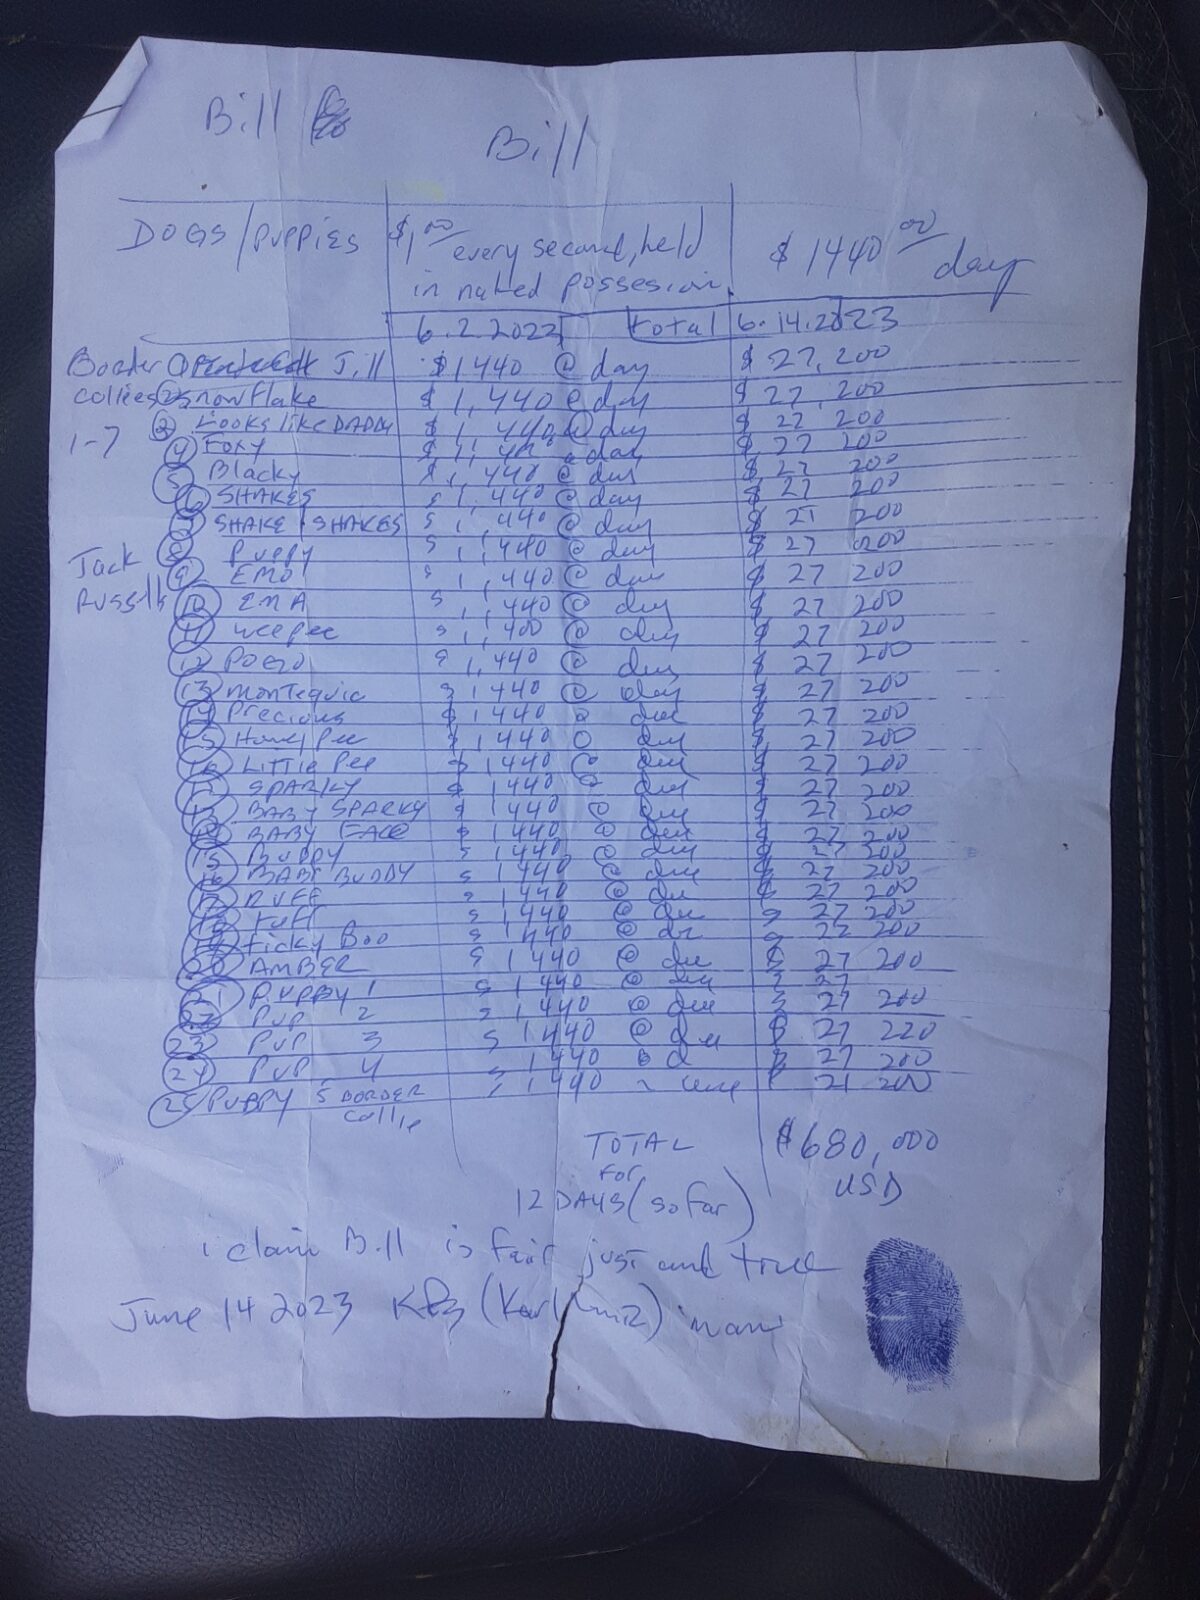 Bill
Bill
DOGS/PUPPIES $1.00 every second, held in naked possesion. $1440.00 day
6.2.2022 total 6.14.2023
Border ① Jill $1,440 @ day $27,200
collies ② Snowflake $1,440 @ day $27,200
1-7 ③ Looks like DADDY $1,440 @ day $27 200
④ Foxy $1,440 @ day $27 200
⑤ Blacky $1,440 @ day $27 200
⑥ SHAKES $1,440 @ day $27 200
⑦ SHAKE SHAKES $1,440 @ day $27 200
Jack ⑧ Puppy $1,440 @ day $27 200
Russells ⑨ EMO $1,440 @ day $27 200
⑩ EMA $1,440 @ day $27 200
⑪ weepee $1,400 @ day $27 200
⑫ POGO $1,440 @ day $27 200
⑬ montequia $1440 @ day $27 200
⑭ Precious $1440 @ $27 200
Honey Pee $1440 @ $27 200
⑯ LITTLE PEE $1440 @ $27 200
SPARKY $1440 @ $27 200
BABY SPARKY $1440 @ $27 200
BABY FACE $1440 @ $27 200
⑮ BUDDY $1440 @ $27 200
⑯ BABY BUDDY $1440 @ $27 200
⑰ RUFF $1440 @ $27 200
⑱ TUFF $1440 @ $27 200
⑲ Ticky Boo $1440 @ $27 200
⑳ AMBER $1440 @ $27 200
㉑ PUPPY 1 $1440 @ $27
㉒ PUP 2 $1440 @ $27 200
㉓ PUP 3 $1440 @ $27 220
㉔ PUP 4 1440 $27 200
㉕ PUPPY 5 BORDER collie $1440 $27 200
TOTAL $680,000
FOR USD
12 DAYS (so far)
i claim Bill is fair just and true
June 14 2023 (Karl man